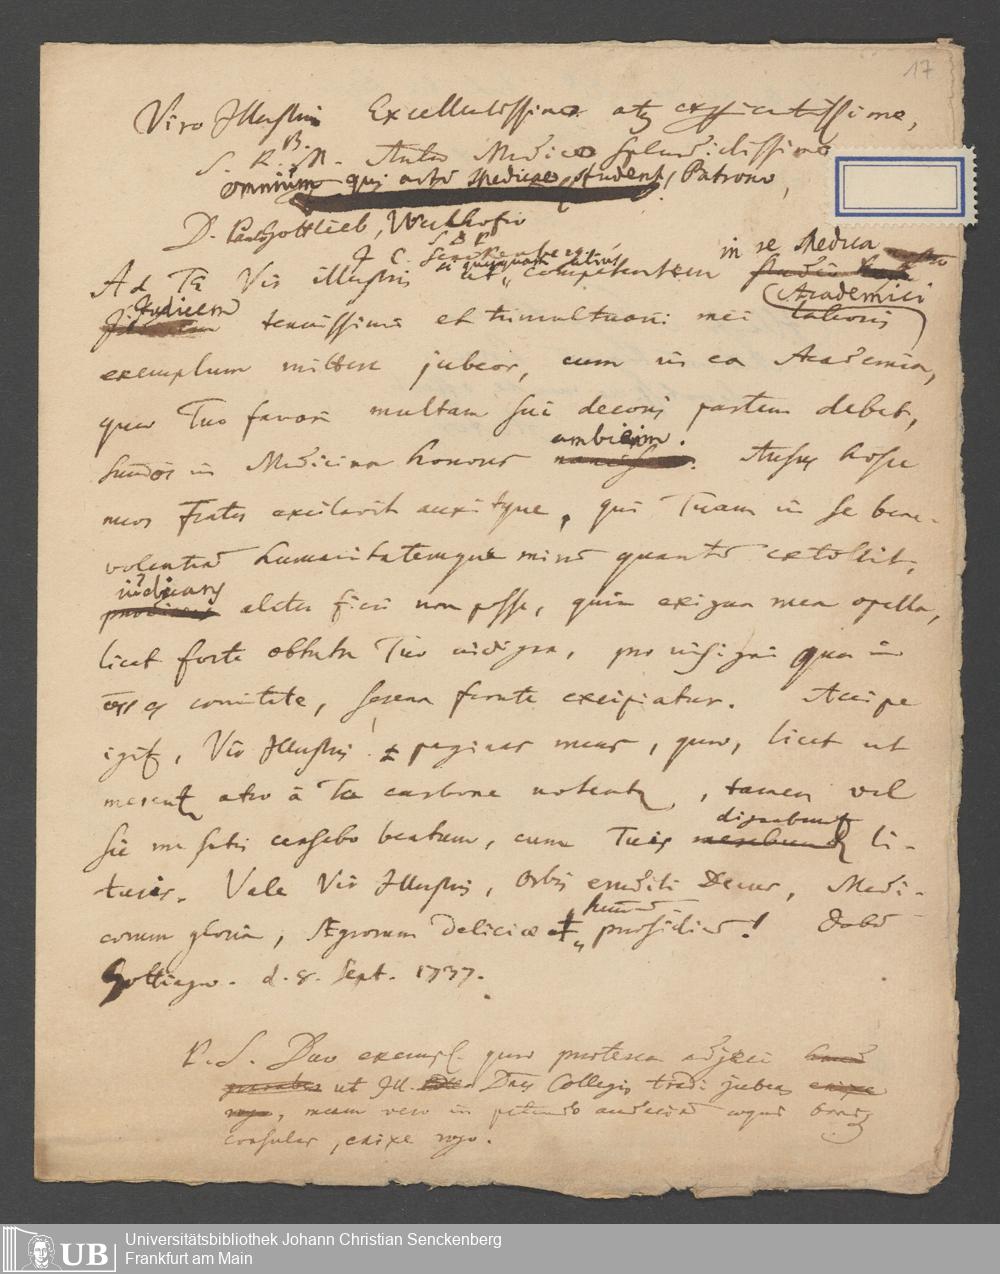 17
Viro Illustri Excellentissimo atq
S. R. B. M. Aulae Medico splendidissimo
omnium qui arti Medicae student, Patrono,
D. Paulo Gottlieb, Werlhofio
S. D. P.
J. C. Senckenberg
Ad Te Vir illustris ut, si quisquam alius, competentem in re Medica
Judicem tenuissimi et tumultuarii mei Academici laboris
exemplum mittere jubeor, cum in ea Academia,
quae Tuo favori multam sui decoris partem debet,
summos in Medicina honores ambierim. Ausus hosce
meos Frater excitavit auxitque, qui Tuam in se bene-
volentiam humanitatemque mirum quantum extollit,
iudicans aliter fieri non posse, quin exigua mea opella,
licet forte obtutu Tuo indigna, pro insigni qua in
omnes es comitate, serena fronte excipiatur. Accipe
igitur, Vir Illustris! paginas meas, quae, licet ut
merentur atro a Te carbone notentur, tamen vel
sic me satis censebo beatum, cum Tuis dignabuntur li-
turis. Vale Vir Illustris, Orbis eruditi Decus, Medi-
corum gloria, Aegrorum Deliciae praesidium! Dabam
Gottingae. d. 8. Sept. 1737.
P. S. Duo exempl. quae praeterea adjeci
ut Ill. Collegis tradi jubeas
, meam vero in petendo audaciam aequi boniq
consulas, enixe rogo.
Universitätsbibliothek Johann Christian Senckenberg
Frankfurt am Main
UB